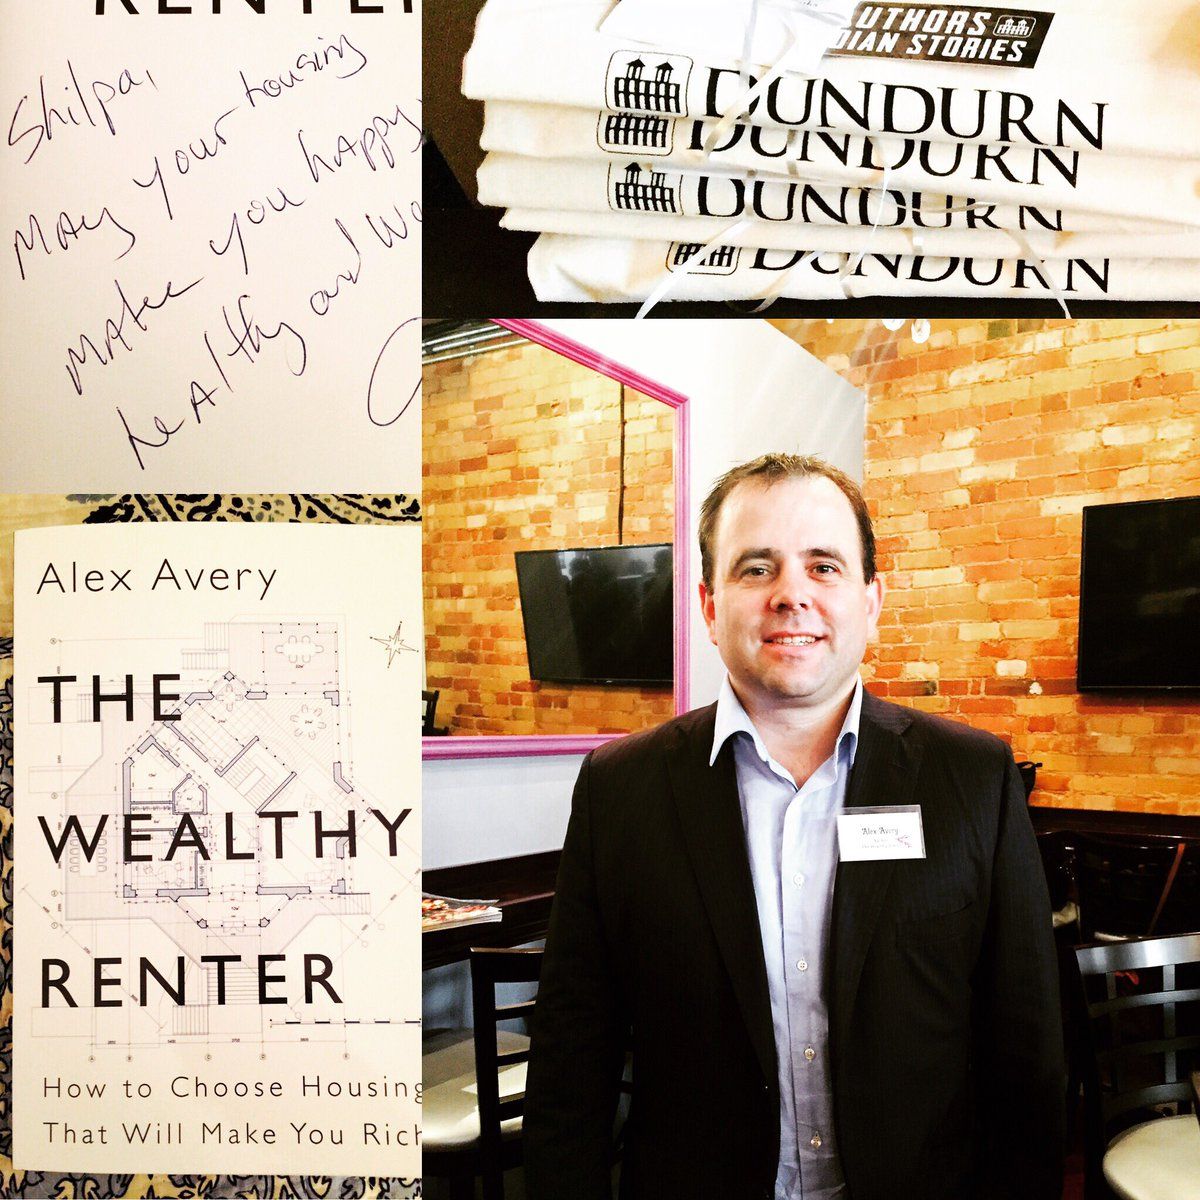 RENTER
Shilpa,
May your housing
make you happy,
healthy and
AUTHORS
DIAN STORIES
DUNDURN
DUNDURN
DUNDURN
DUNDURN
Alex Avery
THE
WEALTHY
RENTER
How to Choose Housing
That Will Make You Rich
Alex Avery